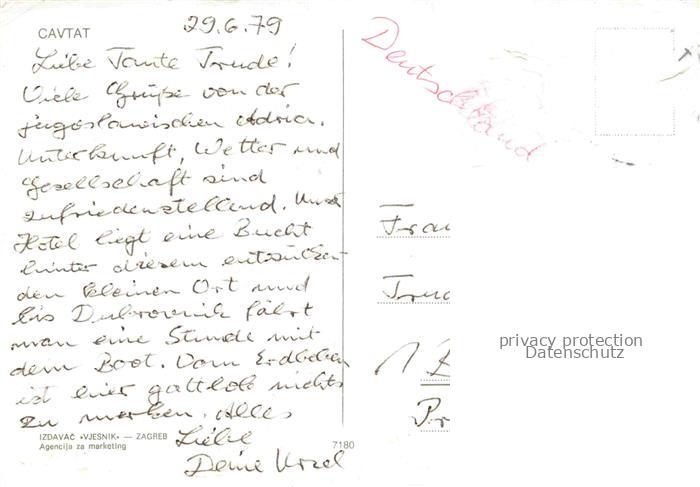 CAVTAT
29.6.79
Liebe Tante Trude!
Viele Grüße von der
jugoslawischen Adria.
Unterkunft, Wetter und
Gesellschaft sind
zufriedenstellend. Unser
Hotel liegt eine Bucht
hinter diesem entzücken-
den kleinen Ort und
bis Dubrovnik fährt
man eine Stunde mit
dem Boot. Vom Erdbeben
ist hier gottlob nichts
zu merken. Alles
Liebe
Deine
IZDAVAČ »VJESNIK« — ZAGREB
Agencija za marketing
7180
Deutschland
Frau
Trud
1
Pr
privacy protection
Datenschutz